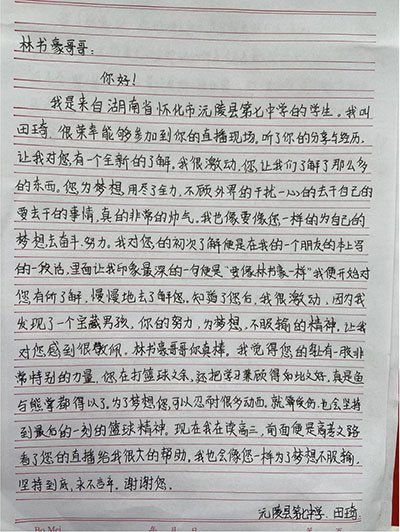 林书豪哥哥:
你好!
我是来自湖南省怀化市沅陵县第七中学的学生。我叫
田琦,很荣幸能够参加到你的直播现场。听了你的分享与经历,
让我对您有个全新的了解。我很激动,您让我们了解了那么多
的东西。您为梦想,用尽了全力,不顾外界的干扰一心的去干自己的
要去干的事情,真的非常的帅气。我也像要像您一样的为自己的
梦想去奋斗,努力。我对您的初次了解便是在我的一个朋友的本上写
的一段话,里面让我印象最深的一句便是"要像林书豪一样"我便开始对
您有所了解,慢慢地去了解您,知道了您后,我很激动,因为我
发现了一个宝藏男孩,你的努力,为梦想,不服输的精神,让我
对您感到很敬佩。林书豪哥哥你真棒。我觉得您的身上有一股非
常特别的力量,您在打篮球之余,还把学习兼顾得如此之好,真是鱼
与熊掌都得以了。为了梦想您可以忍耐很多动面。就算受伤,也会坚持
到最后的一刻的篮球精神。现在我在读高三,前面便是高考之路
看了您的直播给我很大的帮助。我也会像您一样为了梦想不服输,
坚持到底,永不言弃。谢谢您。
沅陵县第七中学 田琦
Bo Mei 年 月 日